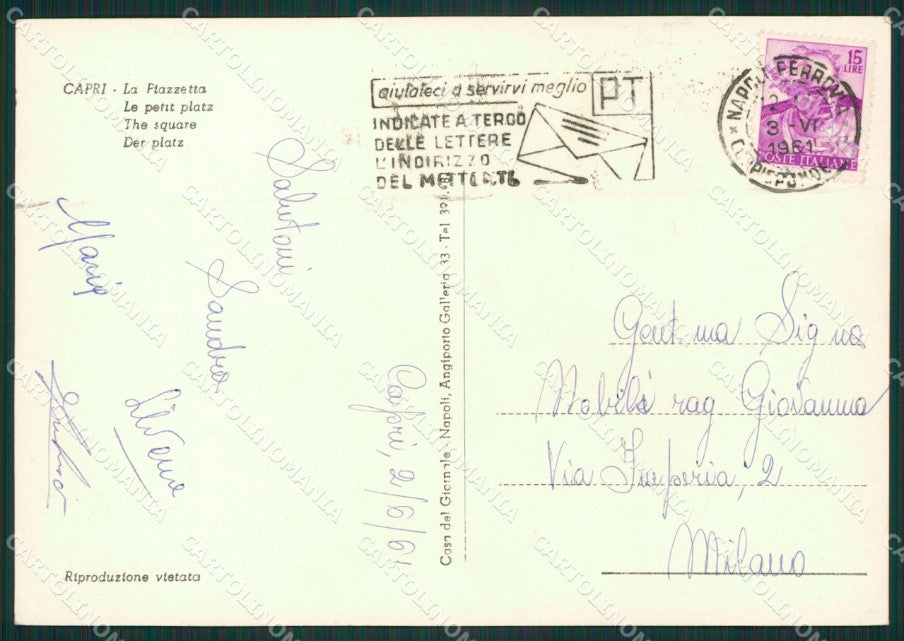 CAPRI - La Piazzetta
Le petit platz
The square
Der platz
aiutateci a servirvi meglio
PT
INDICATE A TERGO
DELLE LETTERE
L'INDIRIZZO
DEL MITTENTE
NAPOLI FERROVIA
3-VI
1961
15
LIRE
POSTE ITALIANE
Salutoni
Sandra
Capri, 2/6/61
Casa del Giornale - Napoli, Angiporto Galleria 33 - Tel.
Gent.ma Sig.na
Nobili rag Giovanna
Via Imperia, 2
Milano
Riproduzione vietata
CARTOLINOMANIA